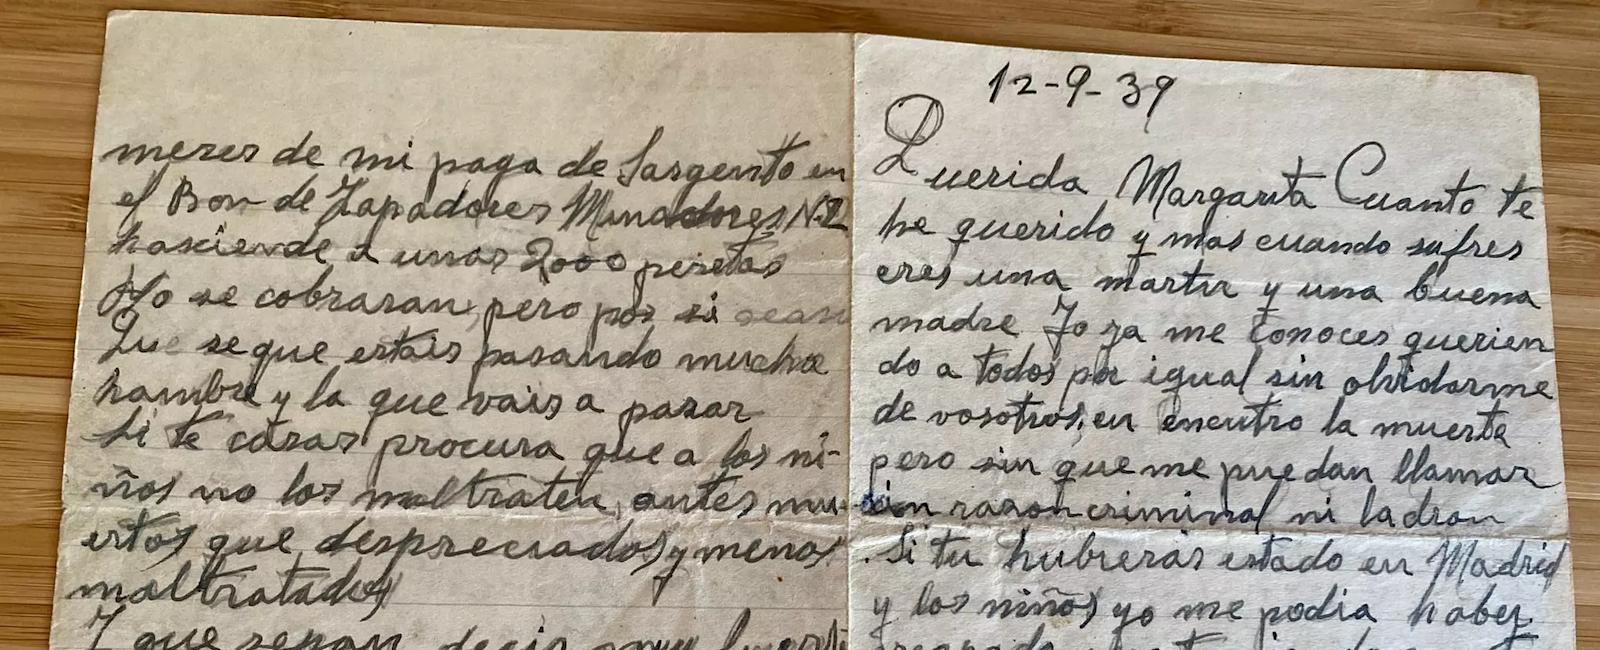 12-9-39
Querida Margarita Cuanto te
he querido y mas cuando sufres
eres una martir y una buena
madre Yo ya me conoces querien
do a todos por igual sin olvidarme
de vosotros, en encutro la muerte
pero sin que me puedan llamar
sin razon criminal ni ladron
. Si tu hubieras estado en Madrid
y los niños yo me podia haber
meses de mi paga de Sargento en
el Bon de Zapadores Minadores N-2
hasciende a unas 2000 pesetas
No se cobraran, pero por si acaso
Que se que estais pasando mucha
hambre y la que vais a pasar
Si te casas procura que a los ni-
ños no los maltraten, antes mu-
ertos que despreciados y menos
maltratados
Y que sepan decir muy